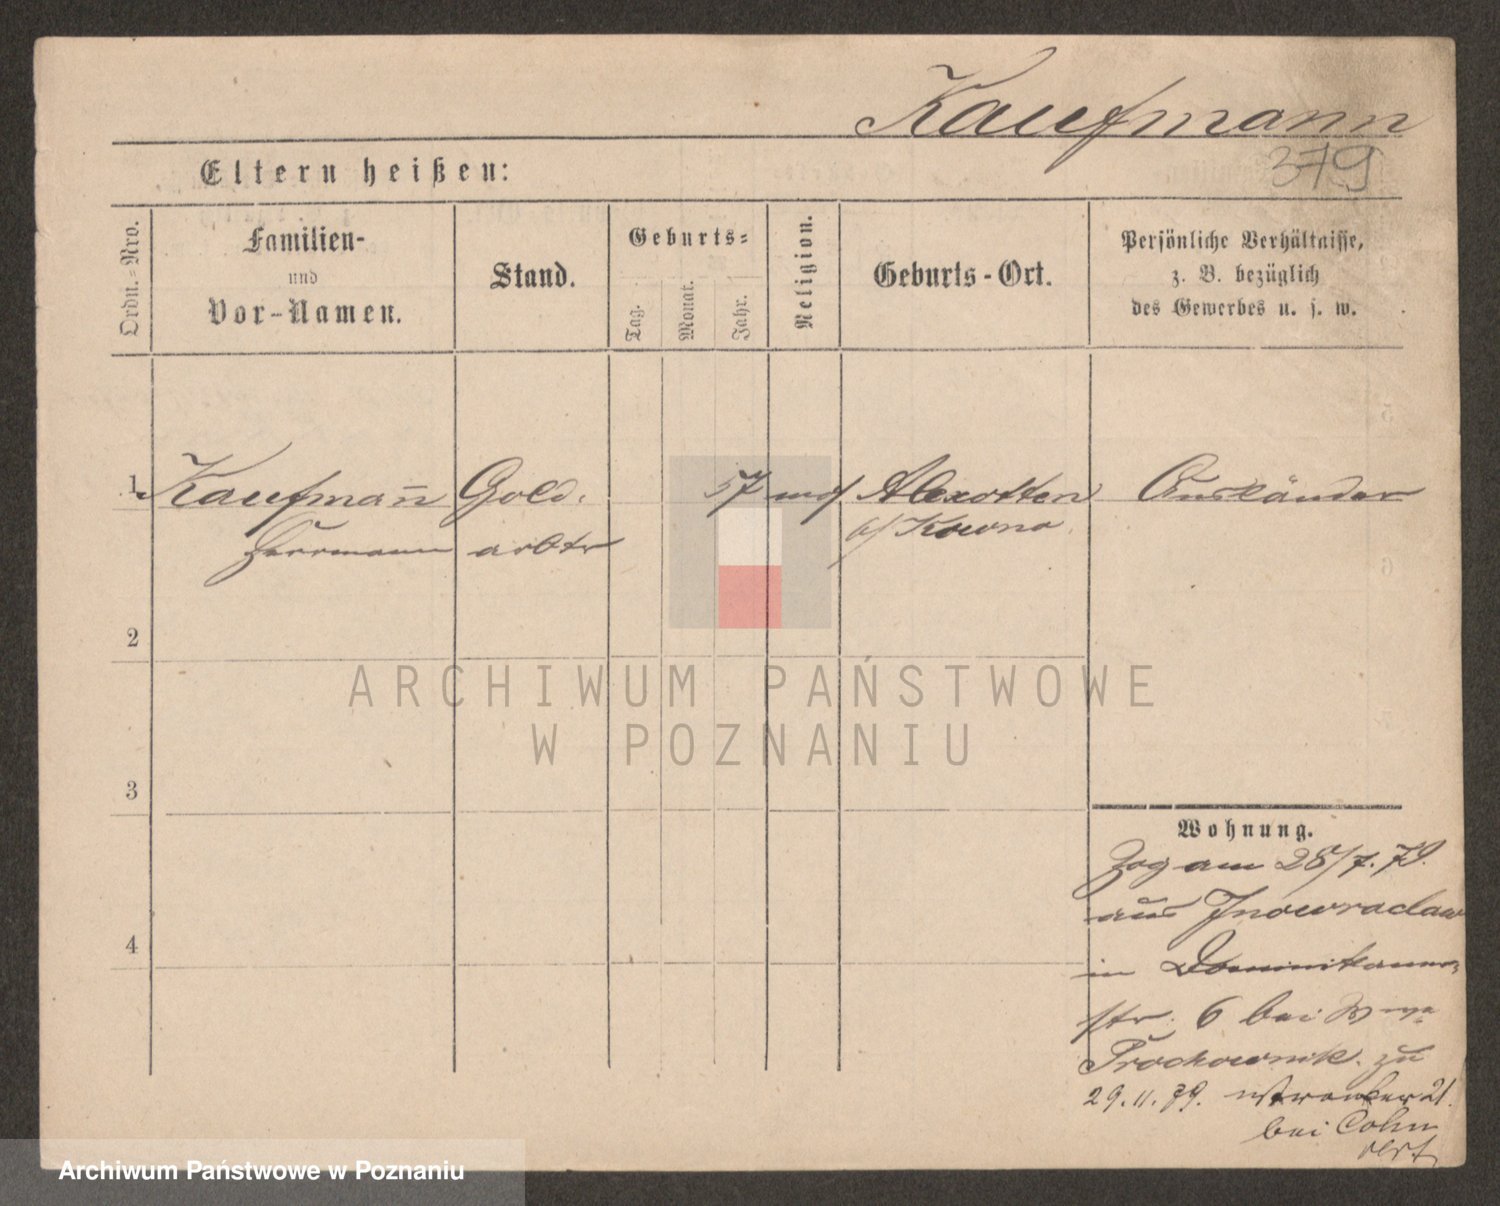 Kaufmann
379
Eltern heißen:
Ordn.=Nro.
Familien-
und
Vor-Namen.
Stand.
Geburts=
Tag.
Monat.
Jahr.
Religion.
Geburts-Ort.
Persönliche Verhältnisse,
z. B. bezüglich
des Gewerbes u. s. w.
1 Kaufmann Gold. 57 mos Alexotten Ausländer
Herrmann arbtr b/ Kowno
2
3
4
Wohnung.
Zog am 28/7. 79.
aus Inowraclaw
in Dominikaner
str. 6 bei Wwe
Prochownik. zu
29.11.79. 21.
bei Cohn
ARCHIWUM PAŃSTWOWE
W POZNANIU
Archiwum Państwowe w Poznaniu